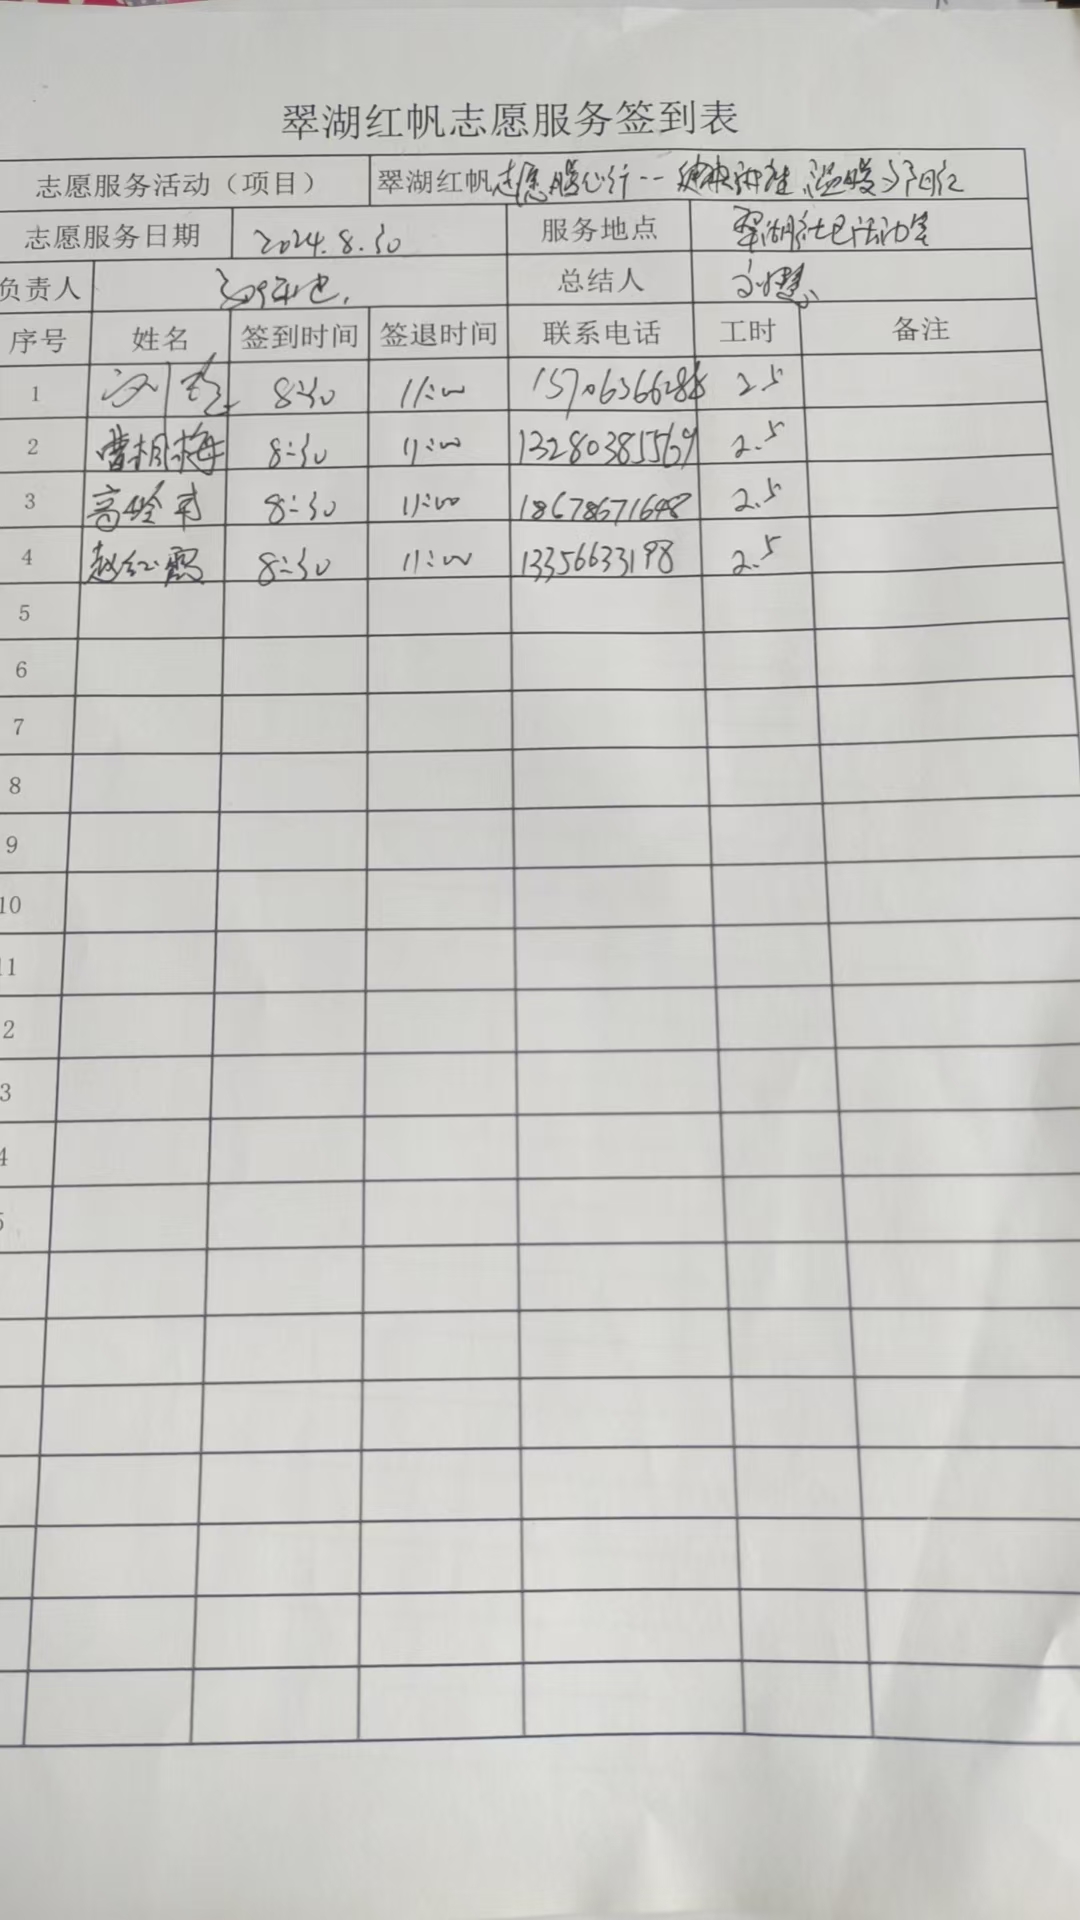 翠湖红帆志愿服务签到表
志愿服务活动（项目） 翠湖红帆志愿暖心行--健康讲座 温暖夕阳红
志愿服务日期 2024.8.30 服务地点 翠湖社区活动室
负责人 总结人
序号 姓名 签到时间 签退时间 联系电话 工时 备注
1 8:30 11:00 2.5
2 曹相梅 8:30 11:00 13280385569 2.5
3 高 8:30 11:00 18678671648 2.5
4 赵红霞 8:30 11:00 13356633198 2.5
5
6
7
8
9
10
11
2
3
4
5